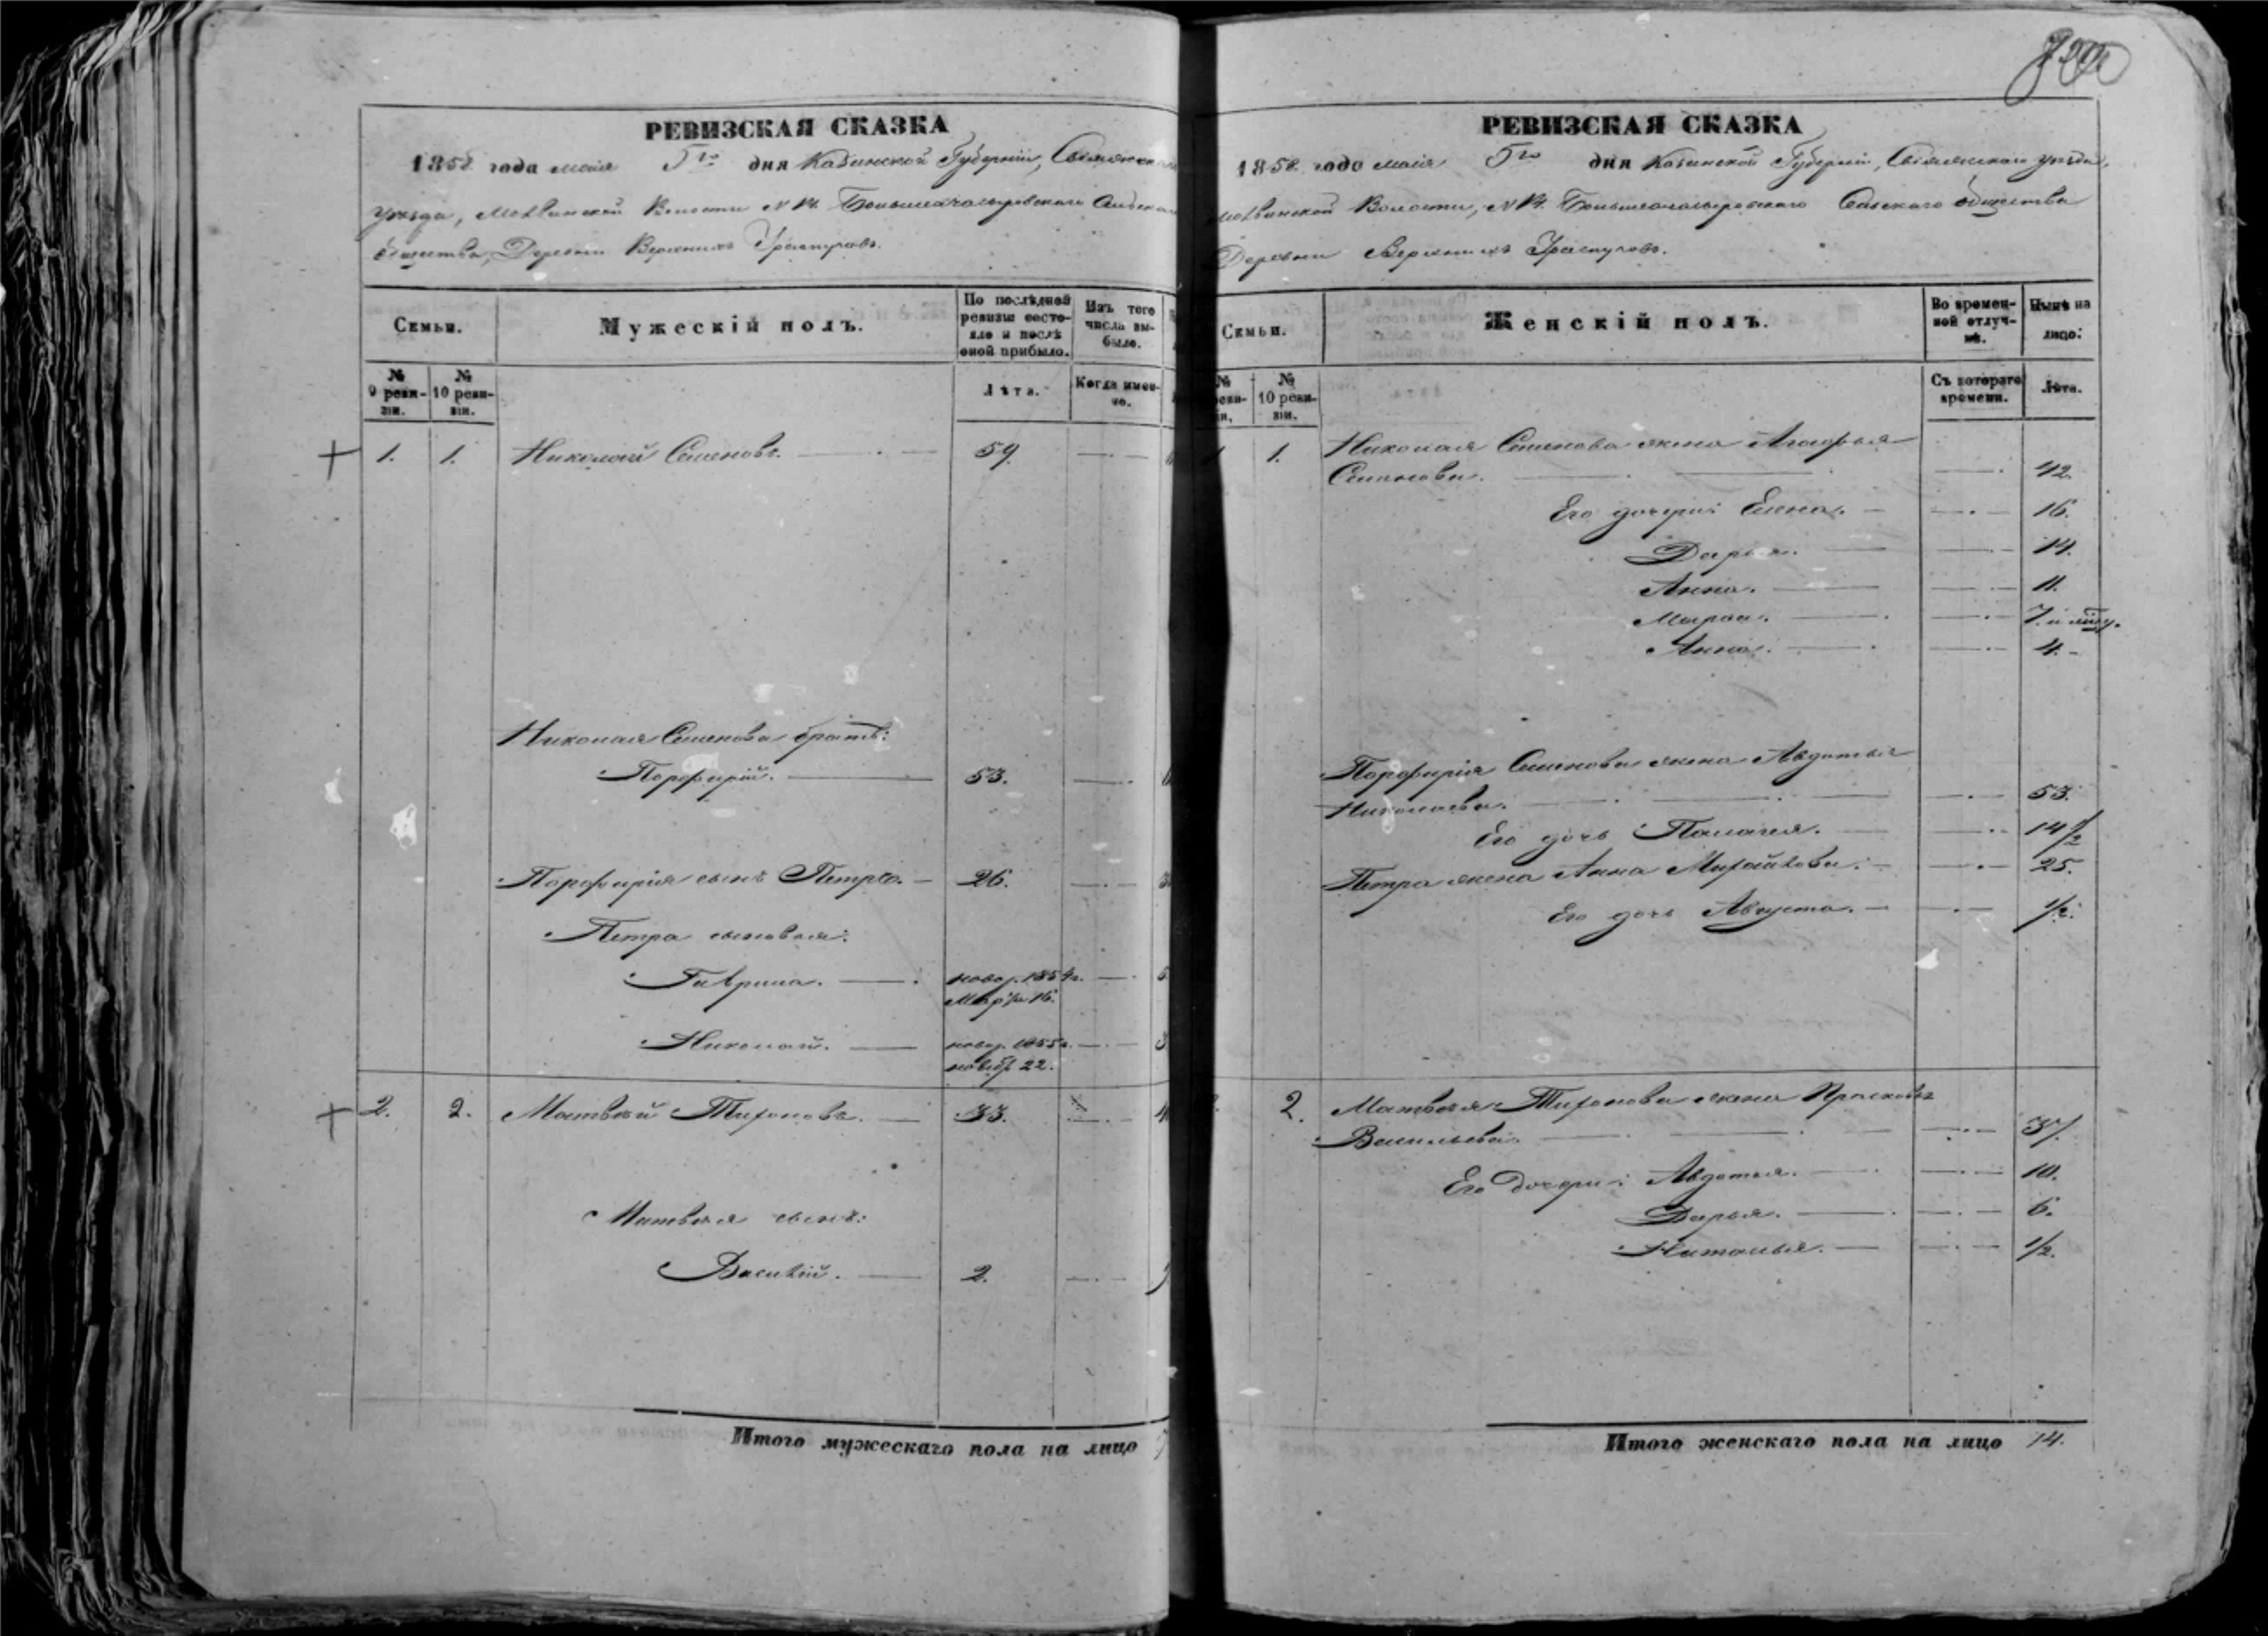 РЕВИЗСКАЯ СКАЗКА
1858 года маія 5го дня Казанской Губерніи, Свіяжскаго
уѣзда, Волости Сельскаго
Общества, Деревни Верхнихъ
Семьи.
Мужескій полъ.
По послѣдней ревизіи состояло и послѣ оной прибыло.
Изъ того числа выбыло.
№ 9 ревизіи.
№ 10 ревизіи.
Лѣта.
Когда именно.
1. 1. Николай Семеновъ. 59.
Николая Семенова братъ:
Порфирій. 53.
Порфирія сынъ Петръ. 26.
Петра сыновья:
Гаврила. новор. 1854г.
Марта 16.
Николай. новор. 1855г.
нояб 22.
2. 2. Матвѣй Тихоновъ. 33. 4
Матвѣя сынъ:
Василій. 2.
Итого мужескаго пола на лицо
РЕВИЗСКАЯ СКАЗКА
1858 года маія 5го дня Казанской Губерніи, Свіяжскаго уѣзда,
Волости, Сельскаго общества
Деревни Верхнихъ
Семьи.
Женскій полъ.
Во временной отлучкѣ.
Нынѣ на лицо:
№ ревизіи.
№ 10 ревизіи.
Съ котораго времени.
Лѣта.
1. Николая Семенова жена Агафья
Семенова. 42.
Его дочери: Елена. 16.
Дарья. 14.
Анна. 11.
Марья. 7.
Анна. 4.
Порфирія Семенова жена Авдотья
Николаева. 53.
Его дочь Палагея. 14 1/2
Петра жена Анна Михайлова. 25.
Его дочь Августа. 1/2.
2. Матвѣя Тихонова жена Прасковья
Васильева. 37.
Его дочери: Авдотья. 10.
Дарья. 6.
Наталья. 1/2.
Итого женскаго пола на лицо 14.